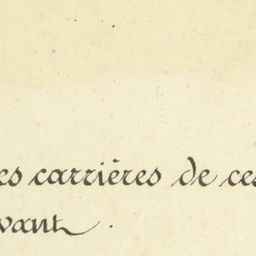 es carrières de ces
vant.